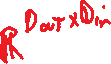 ℝ Dout×Din